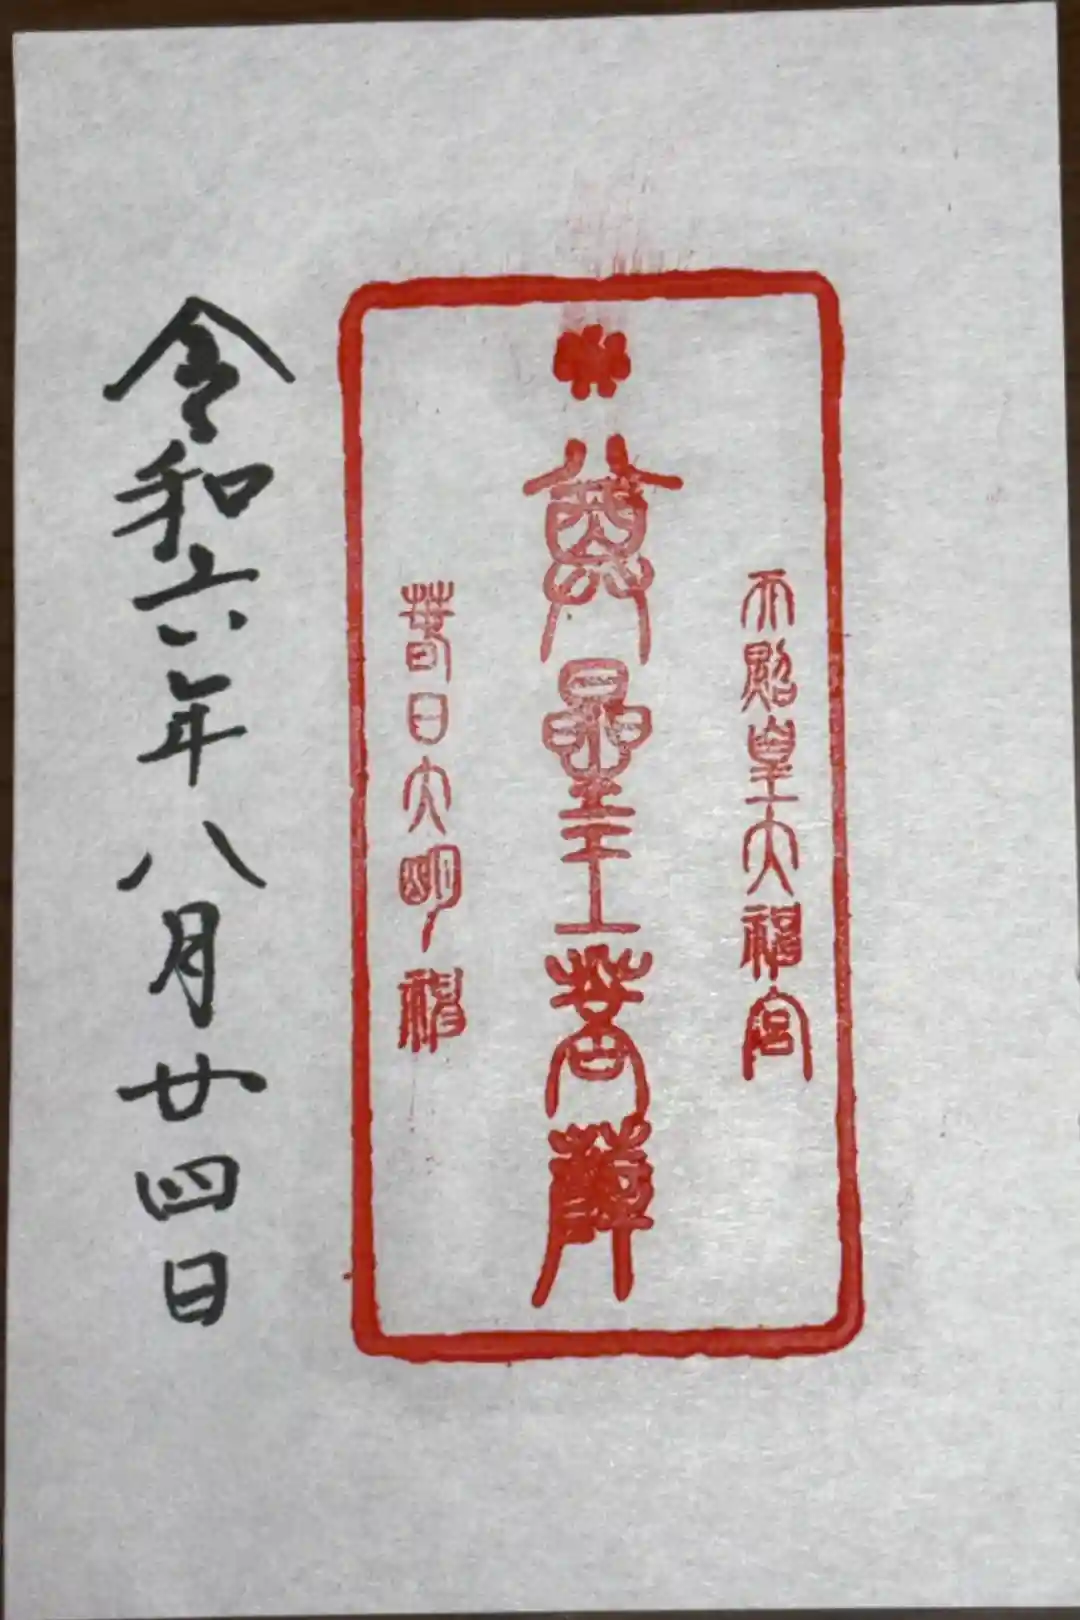 天照皇大神宮
尊星王菩薩
春日大明神
令和六年八月廿四日